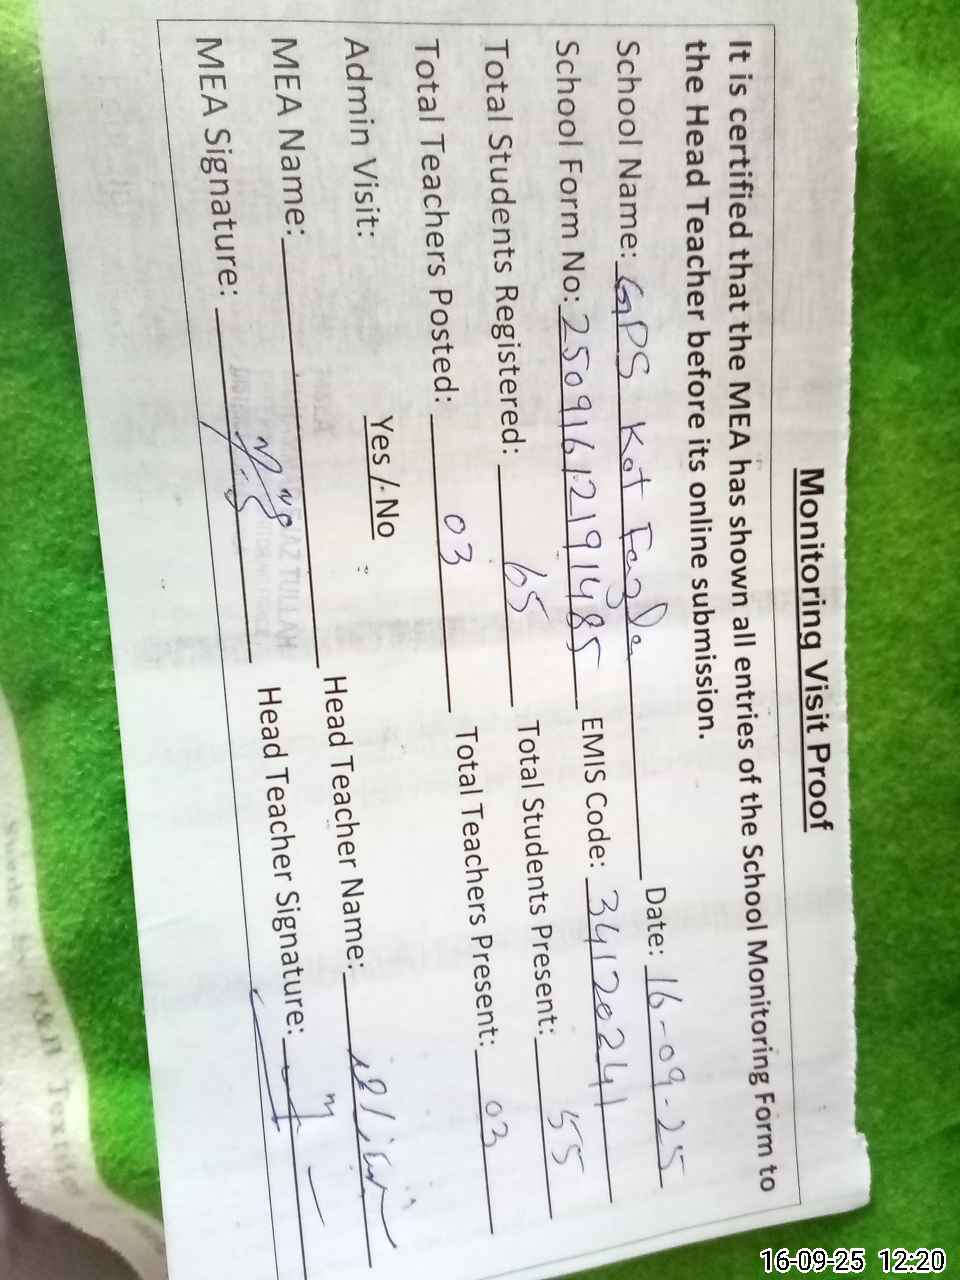 Monitoring Visit Proof
It is certified that the MEA has shown all entries of the School Monitoring Form to
the Head Teacher before its online submission.
School Name: GPS Kot Fazla Date: 16-09-25
School Form No: 25091612191485 EMIS Code: 34120241
Total Students Registered: 65 Total Students Present: 55
Total Teachers Posted: 03 Total Teachers Present: 03
Admin Visit: Yes / No
MEA Name: Head Teacher Name:
MEA Signature: Head Teacher Signature:
16-09-25 12:20